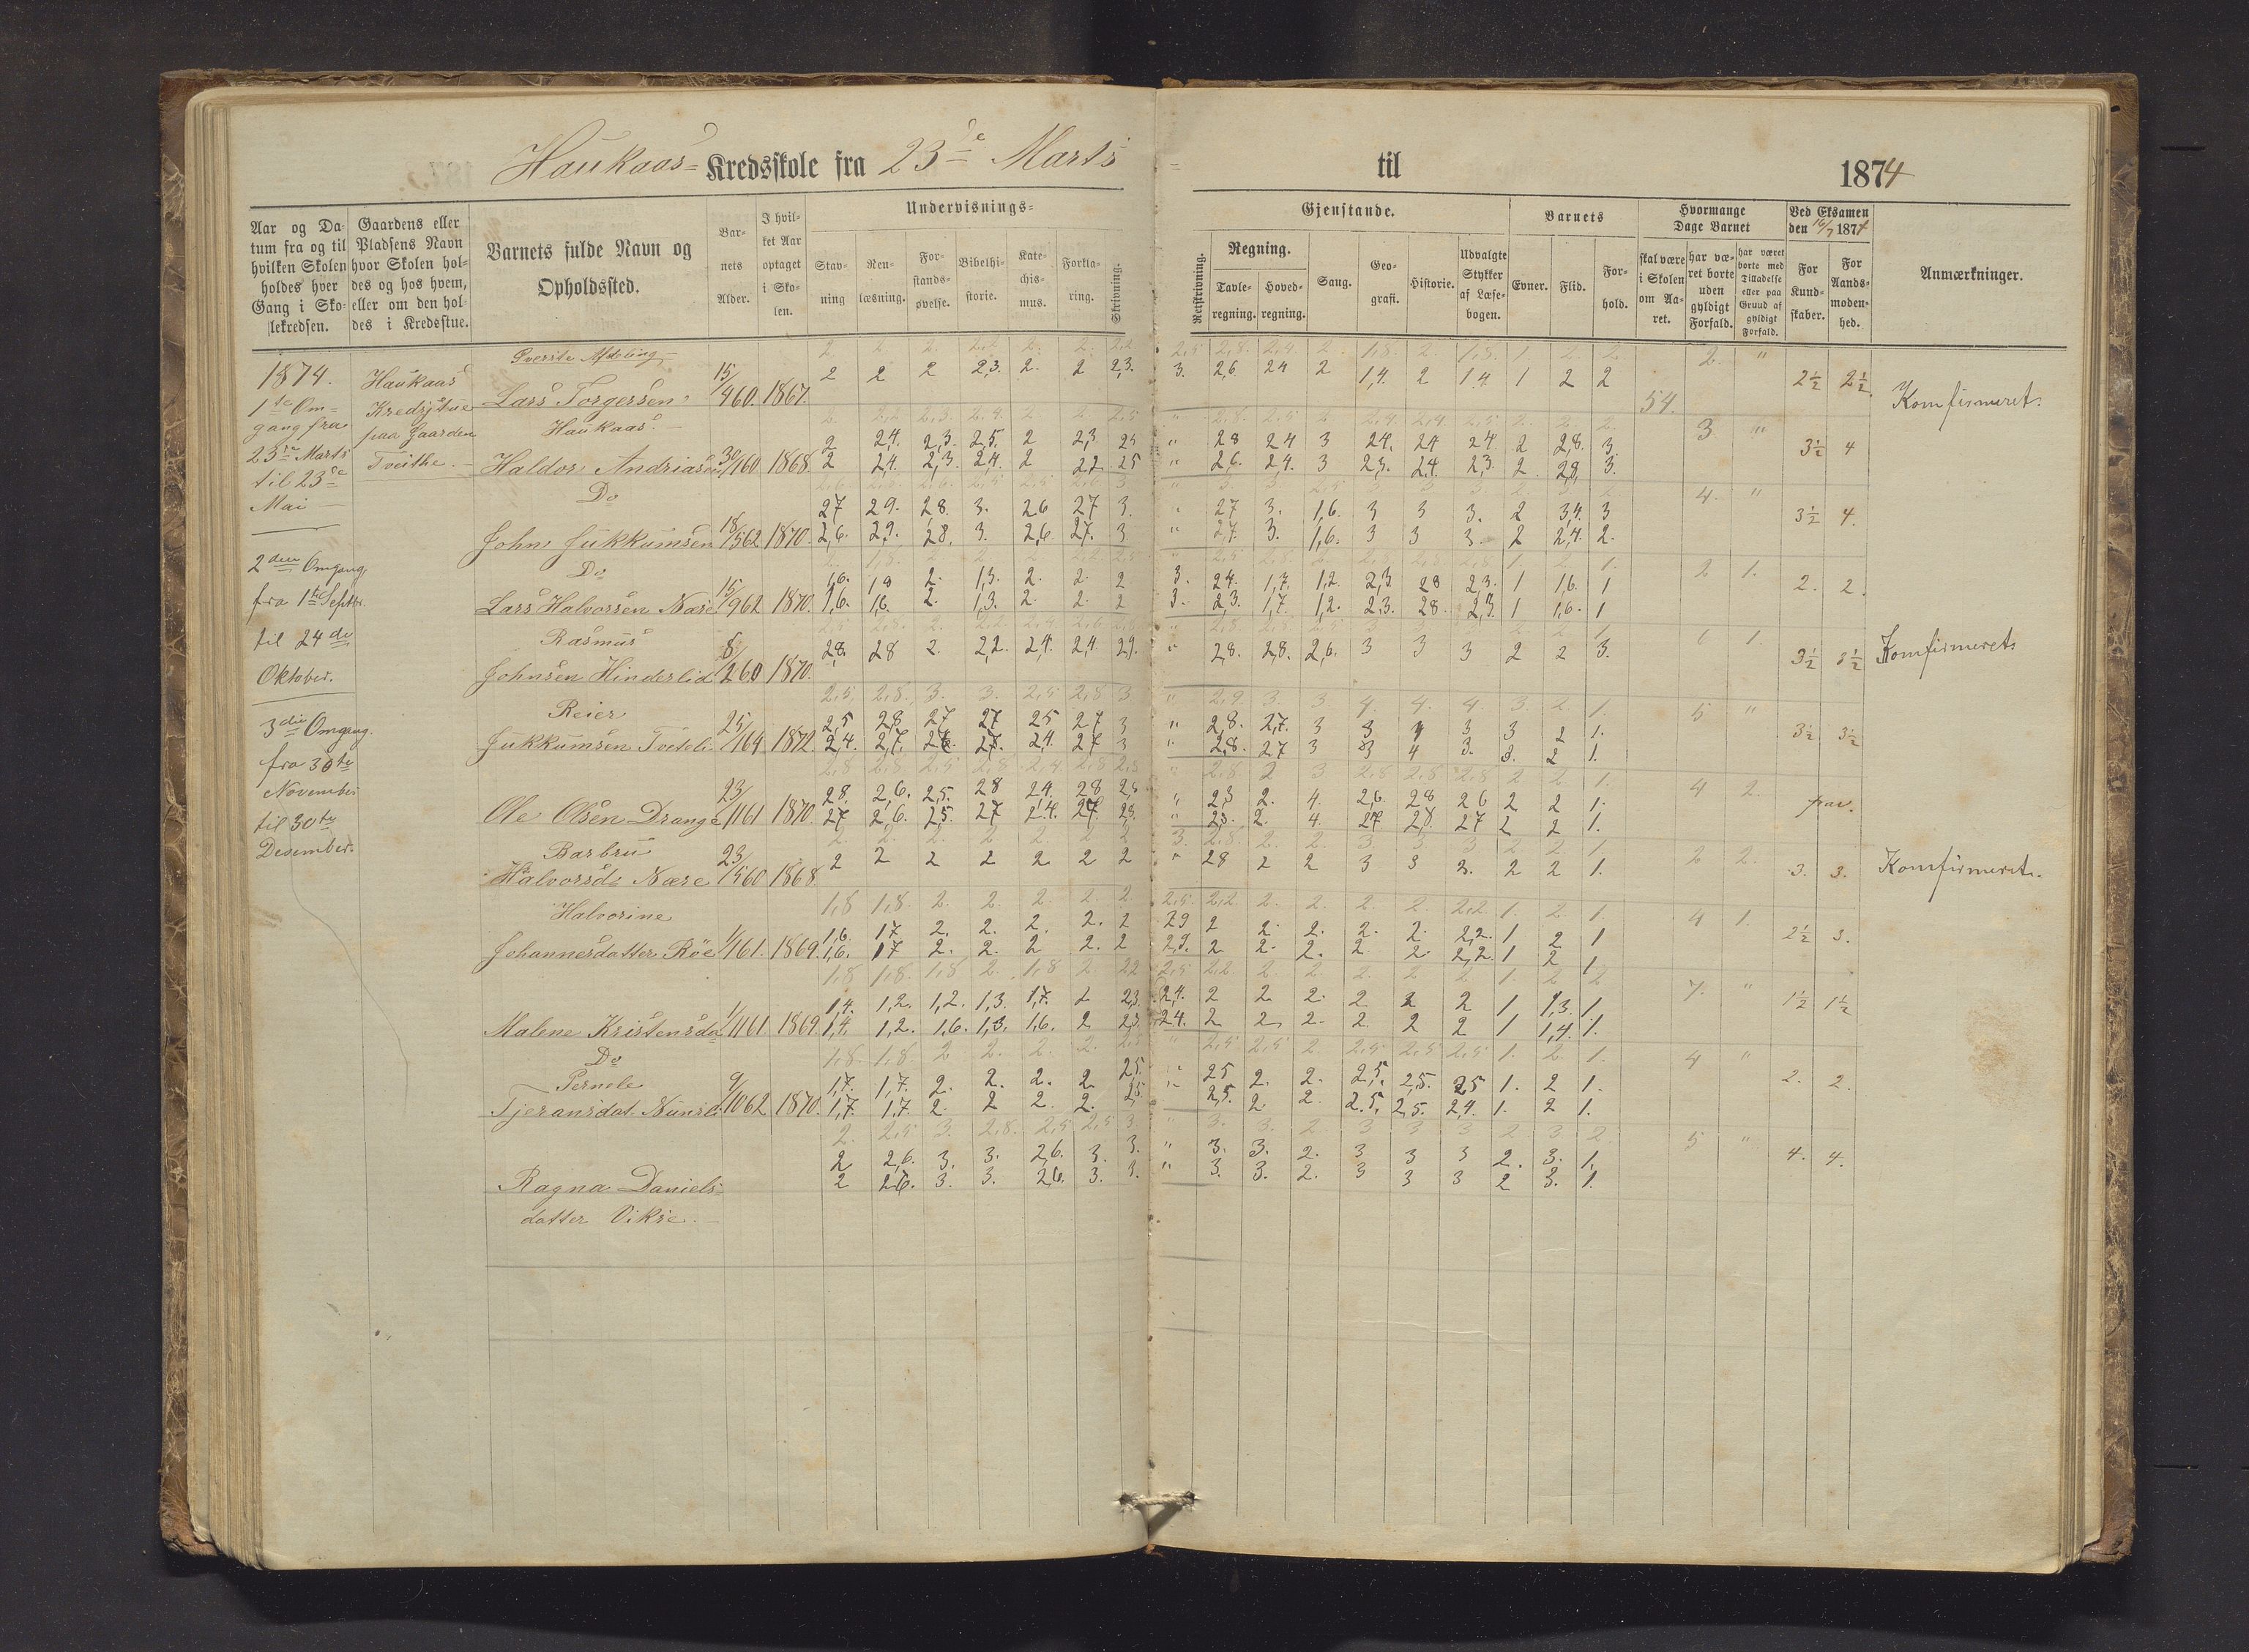 Haukaas- Kredsskole fra 23de Marts - til 1874
Aar og Datum fra og til hvilken Skolen holdes hver Gang i Skolekredsen.
Gaardens eller Pladsens Navn hvor Skolen holdes og hos hvem, eller om den holdes i Kredsstue.
Barnets fulde Navn og Opholdssted.
Barnets Alder.
I hvilket Aar optaget i Skolen.
Undervisnings-
Stavning
Renlæsning.
Forstandsøvelse.
Bibelhistorie.
Katechismus.
Forklaring.
Skrivning.
Gjenstande.
Retskrivning.
Regning.
Tavleregning.
Hovedregning.
Sang.
Geografi.
Historie.
Udvalgte Stykker af Læsebogen.
Barnets
Evner.
Flid.
Forhold.
Hvormange Dage Barnet
skal være i Skolen om Aaret.
har været borte uden gyldigt Forfald.
har været borte med Tilladelse eller paa Grund af gyldigt Forfald.
Ved Eksamen den 16/7 1874
For Kundskaber.
For Aandsmodenhed.
Anmærkninger.
1874.
1te Om=
gang fra
23de Marts
til 23de
Mai
2den Omgang
fra 1te Septbr.
til 24de
Oktober.
3die Omgang.
fra 30te
November
til 30te
Desember.
Haukaas
Kredsstue
paa Gaarden
Tveithe.
Øverste Afdeling
Lars Torgersen 15/4 60. 1867. 2 2 2 2,3. 2. 2 2,3. 3. 2,6 2,4 2 1,4. 2 1,4 1 2 2 54. 2. " 2½ 2½ Komfirmeret.
Haukaas.
2 2,4. 2,3. 2,5. 2 2,3 2,5 " 2,8 2,4 3 2,4. 2,4 2,4 2 2,8. 3. 3 " 3½ 4
Haldor Andriasen 30/1 60 1868. 2 2,4. 2,3. 2,4. 2 2,2 2,5 " 2,6. 2,4. 3 2,3. 2,4. 2,3. 2 2,8 3.
Do
2,7 2,9. 2,8. 3. 2,6 2,7 3. " 2,7 3. 1,6. 3 3 3. 2 3,4. 3 4. " 3½ 4.
John Jukkumsen 18/5 62 1870. 2,6. 2,9. 2,8. 3. 2,6. 2,7. 3 " 2,7. 3. 1,6. 3 3 3. 2 2,4. 2.
Do
1,6. 1,8 2. 1,3. 2. 2. 2. 3. 2,4. 1,7. 1,2. 2,3. 2,8 2,3. 1 1,6. 1 2 1. 2. 2.
Lars Halvorsen Nære 15/9 62 1870. 1,6. 1,6. 2. 1,3. 2 2. 2 3. 2,3. 1,7. 1,2. 2,3. 2,8. 2,3. 1 1,6. 1
Rasmus
Johnsen Hinderlid 8/2 60 1870. 2,8. 2,8 2. 2,2. 2,4. 2,4. 2,9. " 2,8. 2,8. 2,6. 3 3 3 2 2 3. 1 1. 3½ 3½ Komfirmeret
Reier
2,5 2,8 2,7 2,7 2,5 2,7 3 " 2,8. 2,7. 3 3 4 3 3 2 1. 5 " 3½ 3½
Jukkumsen Tveteli 25/1 64 1872. 2,4. 2,7. 2,6. 2,7. 2,4 2,7 3 " 2,8. 2,7 3 3 4 3. 3. 2 1.
2,8. 2,6. 2,5. 2,8 2,4. 2,8 2,5 " 2,3 2. 4. 2,6. 2,8 2,6 2 2 1. 4 2. frav.
Ole Olsen Drange 23/1 61 1870. 2,7 2,6. 2,5. 2,7 2,4. 2,7. 2,3. " 2,3. 2. 4. 2,7 2,8 2,7 2 2 1.
Barbru
Halvorsd. Nære 23/5 60 1868 2 2 2 2 2 2 2 " 2,8 2 2 3 3 3. 2 2 1. 2 2. 3. 3. Komfirmeret.
Halvorine
1,6. 1,7 2. 2. 2. 2. 2 2,9 2 2. 2. 2. 2. 2,2. 1 2 1 4 1. 2½ 3.
Johannesdatter Röe 1/1 61. 1869. 1,6. 1,7 2. 2. 2 2. 2 2,9. 2 2. 2. 2. 2. 2,2. 1 2 1
1,4. 1,2. 1,2. 1,3. 1,7. 2 2,3. 2,4. 2 2 2. 2 2 2 1 1,3. 1. 7. " 1½ 1½
Malene Kristensda 1/1 61 1869. 1,4. 1,2. 1,6. 1,3. 1,6. 2 2,3. 2,4. 2 2 2. 2. 2 2 1 1,4. 1.
Do
Pernele 1,7. 1,7. 2. 2. 2. 2 2,5. " 2,5 2. 2. 2,5. 2,5. 2,5 1. 2 1. 4 " 2. 2.
Tjeransdat. Nunsl. 9/10 62 1870. 1,7. 1,7. 2. 2 2. 2. 2,5. " 2,5. 2 2. 2,5. 2,5. 2,4. 1. 2 1.
2 2,6. 3. 3. 2,6. 3. 3. " 3. 3. 2. 3 3 3 2. 3. 1. 5 " 4. 4.
Ragna Daniels= 2 2,6. 3. 3. 2,6. 3. 3. " 3. 3. 2. 3 3 3 2 3. 1.
datter Vikse.